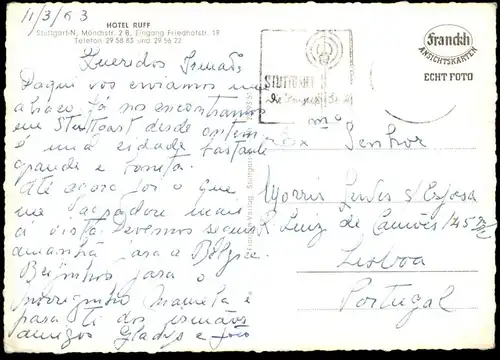 11/3/63
HOTEL RUFF
Stuttgart-N, Mönchstr. 2 B, Eingang Friedhofstr. 19
Telefon 29 58 83 und 29 56 22
Queridos Irmãos,
Daqui vos enviamos um
abraço. Já nos encontramos
em Stuttgart desde ontem,
é uma cidade bastante
grande e bonita.
Até agora foi o que
me agradou mais
à vista. Devemos seguir
amanhã para a Bélgica.
Beijinhos para o
Manuela e
para ti dos irmãos
amigos Gladys e João
STUTTGART
Franckh
ANSICHTSKARTEN
ECHT FOTO
Ex mº Senhor
Morris s/ Esposa
R. Luiz de Camões 145
Lisboa
Portugal